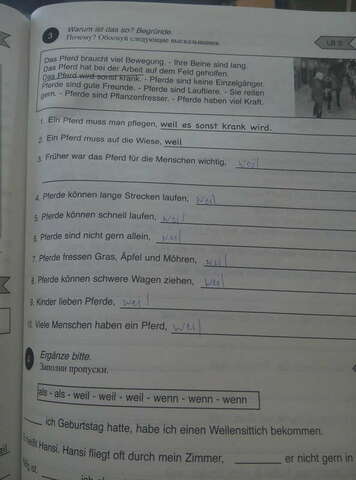 3 Warum ist das so? Begründe.
Почему? Обоснуй следующие высказывания.
LB 5
Das Pferd braucht viel Bewegung. - Ihre Beine sind lang.
Das Pferd hat bei der Arbeit auf dem Feld geholfen.
Das Pferd wird sonst krank. - Pferde sind keine Einzelgänger.
Pferde sind gute Freunde. - Pferde sind Lauftiere. - Sie reiten
gern. - Pferde sind Pflanzenfresser. - Pferde haben viel Kraft.
1. Ein Pferd muss man pflegen, weil es sonst krank wird.
2. Ein Pferd muss auf die Wiese, weil
3. Früher war das Pferd für die Menschen wichtig, weil
4. Pferde können lange Strecken laufen, weil
5. Pferde können schnell laufen, weil
6. Pferde sind nicht gern allein, weil
7. Pferde fressen Gras, Äpfel und Möhren, weil
8. Pferde können schwere Wagen ziehen, weil
9. Kinder lieben Pferde, weil
10. Viele Menschen haben ein Pferd, weil
Ergänze bitte.
Заполни пропуски.
als - als - weil - weil - weil - wenn - wenn - wenn
ich Geburtstag hatte, habe ich einen Wellensittich bekommen.
heißt Hansi. Hansi fliegt oft durch mein Zimmer, er nicht gern in
ist.